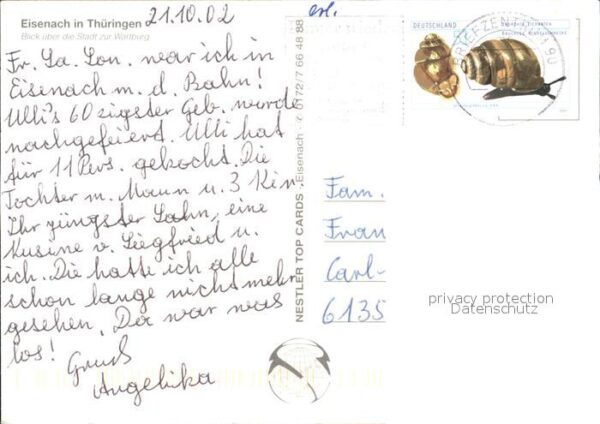 Eisenach in Thüringen
Blick über die Stadt zur Wartburg
21.10.02
Fr. Sa. Son. war ich in
Eisenach m. d. Bahn!
Ulli's 60 zigster Geb. wurde
nachgefeiert. Ulli hat
für 11 Pers. gekocht. Die
Tochter m. Mann u. 3 Kin.
Ihr jüngster Sohn, eine
Kusine v. Siegfried u.
ich. Die hatte ich alle
schon lange nicht mehr
gesehen. Da war was
los!
Gruß
Angelika
NESTLER TOP CARDS
Eisenach
0172/7 66 48 88
erl.
DEUTSCHLAND
BRIEFZENTRUM
90
Fam.
Frau
Carl-
6135
privacy protection
Datenschutz